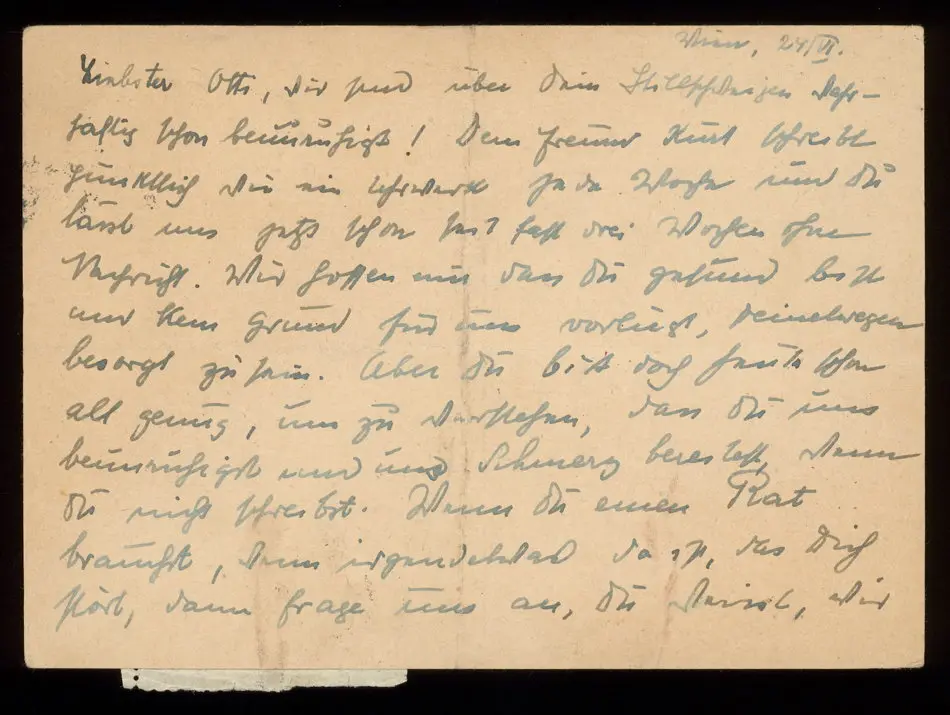 Wien, 24/VI.
Liebster Otto, wir sind über Dein Stillschweigen wahr-
haftig schon beunruhigt! Dein Freund Kurt schreibt
pünktlich wie ein Uhrwerk jede Woche und Du
lässt uns jetzt schon seit fast drei Wochen ohne
Nachricht. Wir hoffen nur dass Du gesund bist
und kein Grund für uns vorliegt, Deinetwegen
besorgt zu sein. Aber Du bist doch heute schon
alt genug, um zu verstehen, dass Du uns
beunruhigst und uns Schmerz bereitest, wenn
Du nicht schreibst. Wenn Du einen Rat
brauchst, wenn irgendetwas da ist, das Dich
stört, dann frage uns an, Du weisst, wir